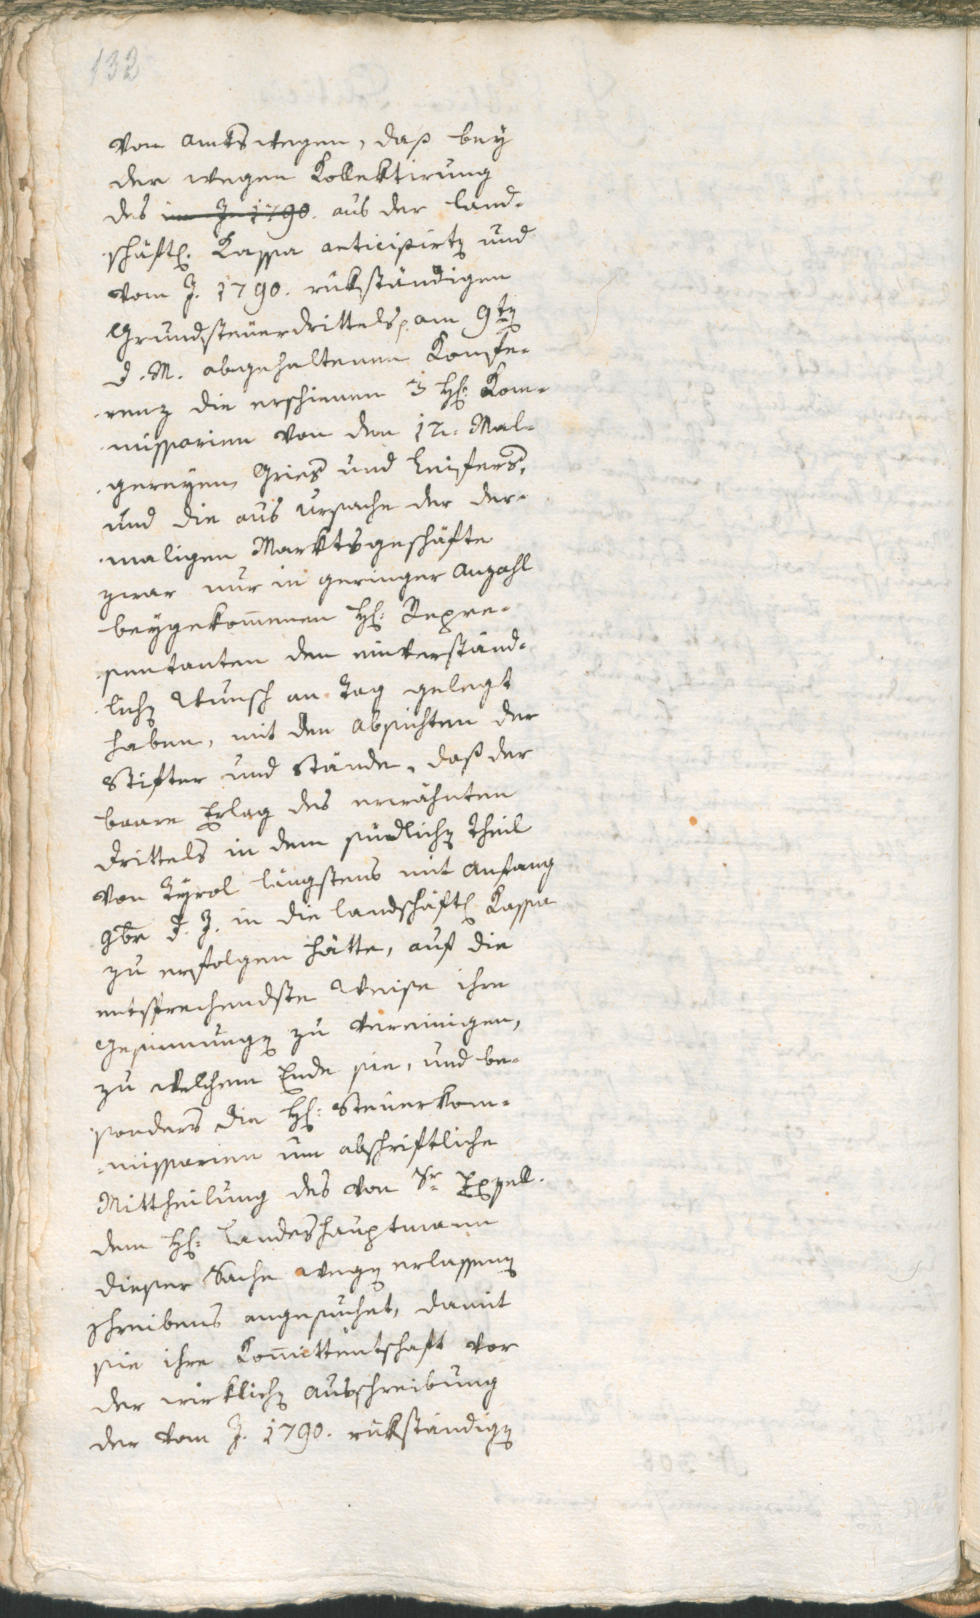 132
von amtswegen, daß bey
der wegen Kollektirung
des im J. 1790. aus der land-
schäftl. Kassa anticipirten und
vom J. 1790. rükständigen
Grundsteuerdrittels am 9ten
d. M. abgehaltenen Konfe-
renz die erschienen 3 H: Kom-
missarien von den 12. Mal-
gereyen, Gries und Leifers,
und die aus Ursache der der-
maligen Marktsgeschäfte
zwar nur in geringer Anzahl
beygekom̅enen H: Repre-
sentanten den einverständ-
lichen Wunsch an Tag gelegt
haben, mit den Absichten der
Stifter und Stände, daß der
baare Erlag des erwähnten
Drittels in dem südlichen Theil
von Tyrol längstens mit Anfang
9br d. J. in die landschäftl. Kassa
zu erfolgen hätte, auf die
entsprechendste Weise ihre
Gesinnungen zu vereinigen,
zu welchem Ende sie, und be-
sonders die H: Steuerkom-
missarien um abschriftliche
Mittheilung des von Sr Exzell.
dem H: Landeshauptmann
dieser Sache wegen erlassenen
Schreibens angesuchet, damit
sie ihre Kom̅ittentschaft vor
der wirklichen Ausschreibung
der vom J. 1790. rükständigen